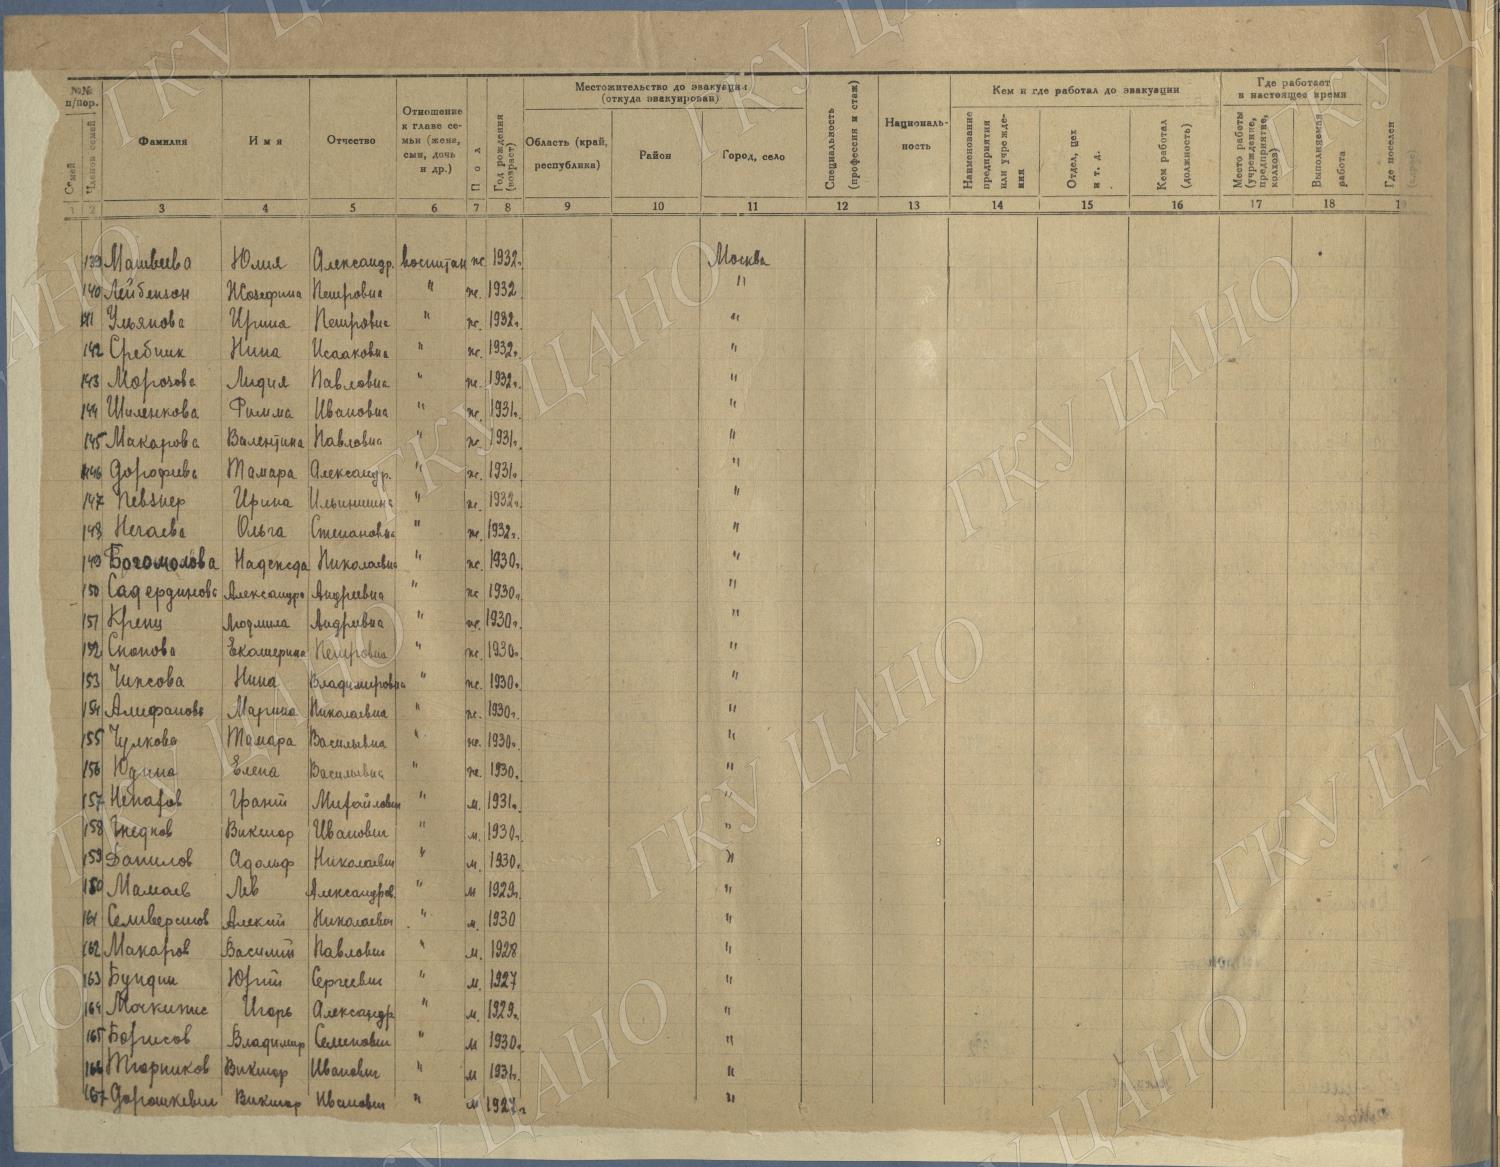 №№ п/пор.
Семей
Членов семей
Фамилия
Имя
Отчество
Отношение к главе семьи (жена, сын, дочь и др.)
Пол
Год рождения (возраст)
Местожительство до эвакуации (откуда эвакуирован)
Область (край, республика)
Район
Город, село
Специальность (профессия и стаж)
Националь-ность
Кем и где работал до эвакуации
Наименование предприятия или учрежде-ния
Отдел, цех и т. д.
Кем работал (должность)
Где работает в настоящее время
Место работы (учреждение, предприятие, колхоз)
Выполняемая работа
Где поселен (адрес)
1 2 3 4 5 6 7 8 9 10 11 12 13 14 15 16 17 18 1
139 Матвеева Юлия Александр. воспитан ж 1932г. Москва
140 Лейбензон Жозефина Петровна " ж. 1932 "
141 Ульянова Ирина Петровна " ж. 1932г. "
142 Сребник Нина Исааковна " ж. 1932г. "
143 Морозова Лидия Павловна " ж. 1932г. "
144 Шиленкова Римма Ивановна " ж. 1931г. "
145 Макарова Валентина Павловна " ж. 1931г. "
146 Дорофеева Тамара Александр. " ж. 1931г. "
147 Певзнер Ирина Ильинишна " ж. 1932г. "
148 Нечаева Ольга Степановна " ж. 1932г. "
149 Богомолова Надежда Николаевна " ж. 1930г. "
150 Садердинова Александра Андреевна " ж 1930г. "
151 Кренц Людмила Андреевна " ж. 1930г. "
152 Снопова Екатерина Петровна " ж. 1930г. "
153 Чижова Нина Владимировна " ж. 1930г. "
154 Алифанова Марина Николаевна " ж. 1930г. "
155 Чулкова Тамара Васильевна " ж. 1930г. "
156 Юдина Елена Васильевна " ж. 1930г. "
157 Грант Михайлович " м. 1931г. "
158 Виктор Иванович " м. 1930г. "
159 Данилов Адольф Николаевич " м. 1930г. "
160 Мамаев Лев Александров. " м 1929г. "
161 Селиверстов Алексей Николаевич " м. 1930 "
162 Макаров Василий Павлович " м. 1928 "
163 Бундин Юрий Сергеевич " м. 1927 "
164 Игорь Александр " м. 1929г. "
165 Борисов Владимир Семенович " м 1930г. "
166 Тюрников Виктор Иванович " м 1931г. "
167 Дорошкевич Виктор Иванович " м 1927г "
ГКУ ЦАНО